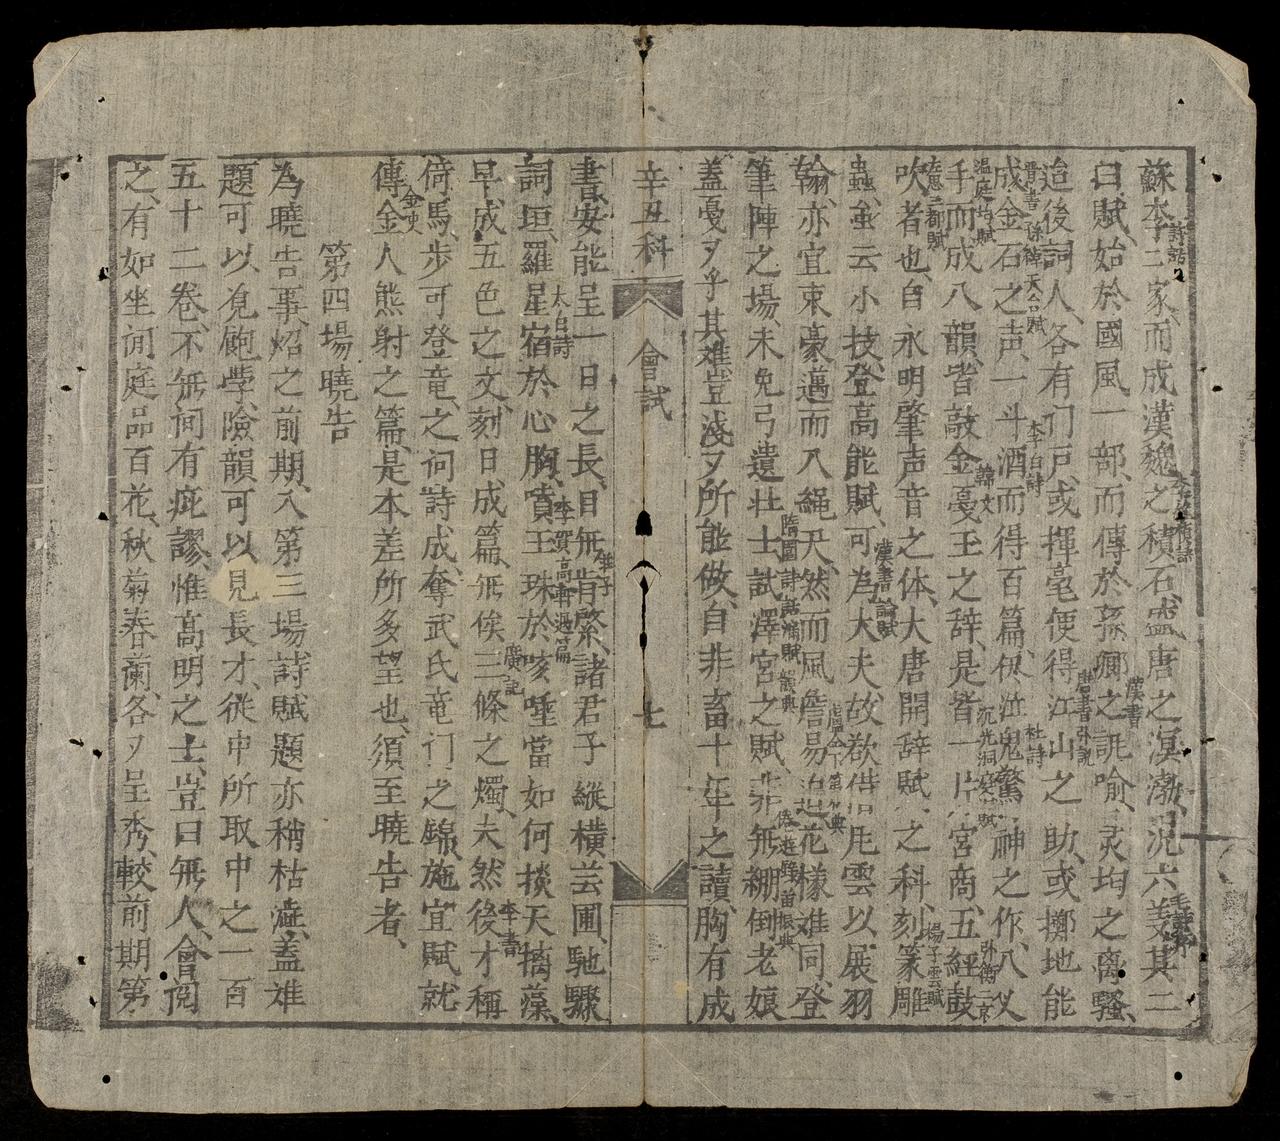 蘇李二家而成漢魏之積石盛唐之溟渤況六義其二
曰賦始於國風一部而傳於孫卿之誂喻灵均之离騷
迨後詞人各有门戸或揮毫便得江山之助或擲地能
成金石之声一斗酒而得百篇伥泣鬼驚神之作八乂
手而成八韻皆敲金戞玉之辞是皆一片宮商五經鼓
吹者也自永明肇声音之体大唐開辞賦之科刻篆雕
蟲虽云小技登高能賦可為大夫故欲借咫雲以展羽
翰亦宜束豪邁而入繩尺然而風簷易迫花樣难同登
筆陣之場未免弓遺壮士試澤宮之賦非無綳倒老娘
蓋戞ヌ乎其难豈淺ヌ所能做自非畜十年之讀胸有成
辛丑科 會試 七
書安能呈一日之長目無肯綮諸君子縱横芸圃馳驟
詞垣羅星宿於心胸噴玉珠於咳唾當如何掞天摛藻
早成五色之文刻日成篇無俟三條之燭夫然後才稱
倚馬步可登竜之问詩成奪武氏竜门之錦施宜賦就
傳金人熊射之篇是本差所多望也須至曉告者
第四場曉告
為曉告事炤之前期入第三場詩賦題亦稍枯澁蓋难
題可以見飽學險韻可以見長才従中所取中之一百
五十二卷不無间有疵謬惟高明之士豈曰無人會閲
之有如坐间庭品百花秋菊春蘭各ヌ呈秀較前期第